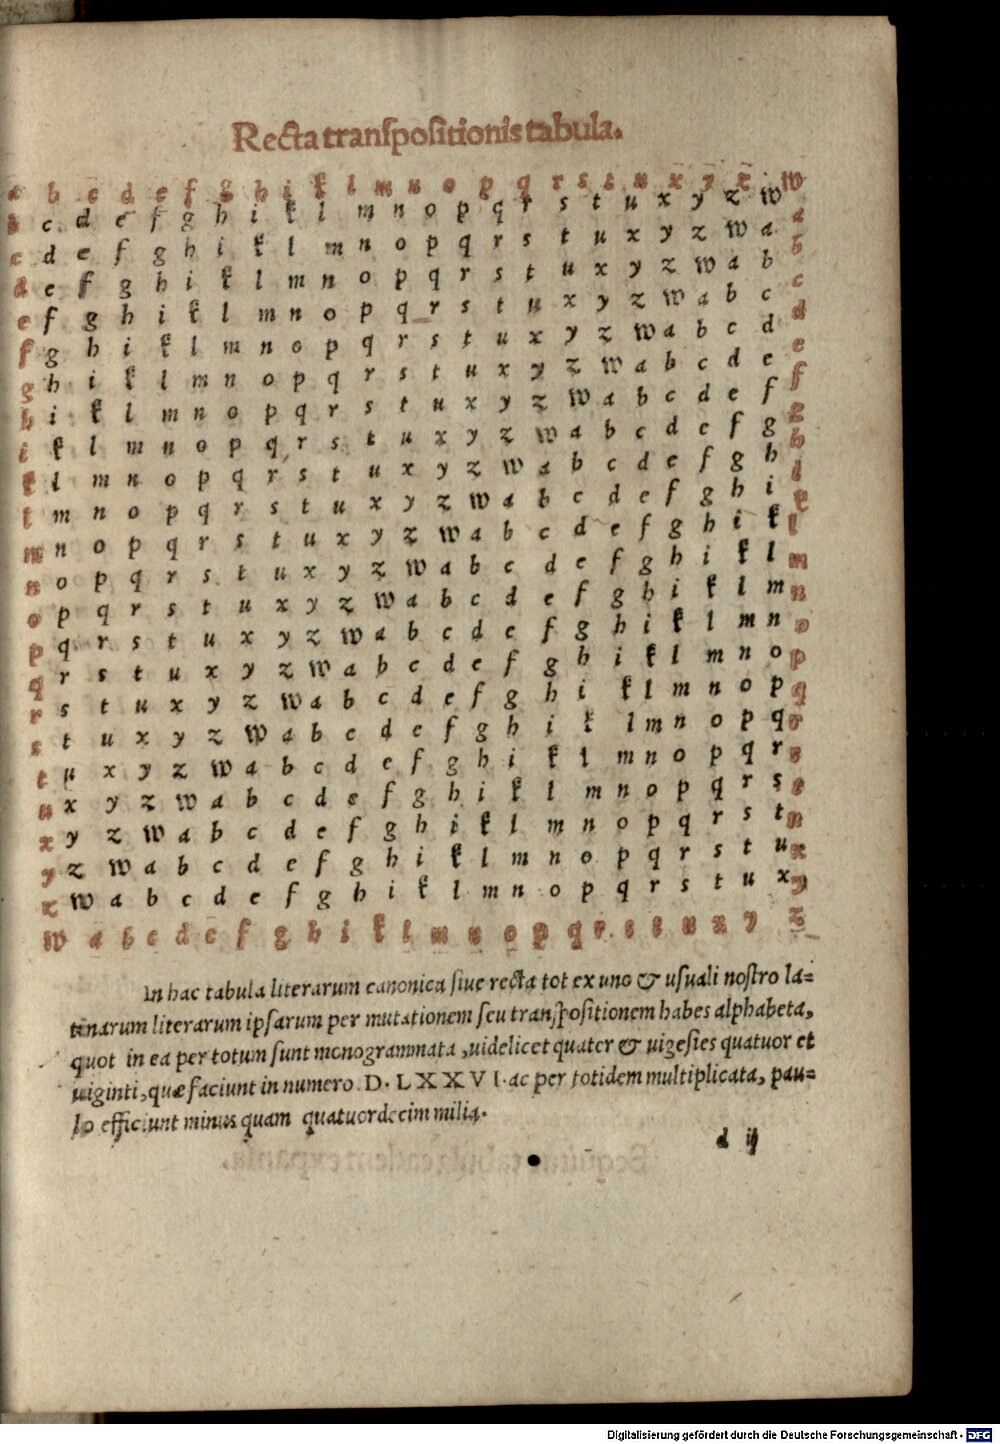 Recta tranſpoſitionis tabula.
a b c d e f g h i k l m n o p q r s t u x y z w
b c d e f g h i k l m n o p q r s t u x y z w a
c d e f g h i k l m n o p q r s t u x y z w a b
d e f g h i k l m n o p q r s t u x y z w a b c
e f g h i k l m n o p q r s t u x y z w a b c d
f g h i k l m n o p q r s t u x y z w a b c d e
g h i k l m n o p q r s t u x y z w a b c d e f
h i k l m n o p q r s t u x y z w a b c d e f g
i k l m n o p q r s t u x y z w a b c d e f g h
k l m n o p q r s t u x y z w a b c d e f g h i
l m n o p q r s t u x y z w a b c d e f g h i k
m n o p q r s t u x y z w a b c d e f g h i k l
n o p q r s t u x y z w a b c d e f g h i k l m
o p q r s t u x y z w a b c d e f g h i k l m n
p q r s t u x y z w a b c d e f g h i k l m n o
q r s t u x y z w a b c d e f g h i k l m n o p
r s t u x y z w a b c d e f g h i k l m n o p q
s t u x y z w a b c d e f g h i k l m n o p q r
t u x y z w a b c d e f g h i k l m n o p q r s
u x y z w a b c d e f g h i k l m n o p q r s t
x y z w a b c d e f g h i k l m n o p q r s t u
y z w a b c d e f g h i k l m n o p q r s t u x
z w a b c d e f g h i k l m n o p q r s t u x y
w a b c d e f g h i k l m n o p q r s t u x y z
In hac tabula literarum canonica ſiue recta tot ex uno & uſuali noſtro la=
tinarum literarum ipſarum per mutationem ſeu tranſpoſitionem habes alphabeta,
quot in ea per totum ſunt monogrammata, uidelicet quater & uigeſies quatuor et
uiginti, quæ faciunt in numero. D. LXXVI. ac per totidem multiplicata, pau=
lo efficiunt minus quam quatuordecim milia.
d ij
Digitalisierung gefördert durch die Deutsche Forschungsgemeinschaft - DFG